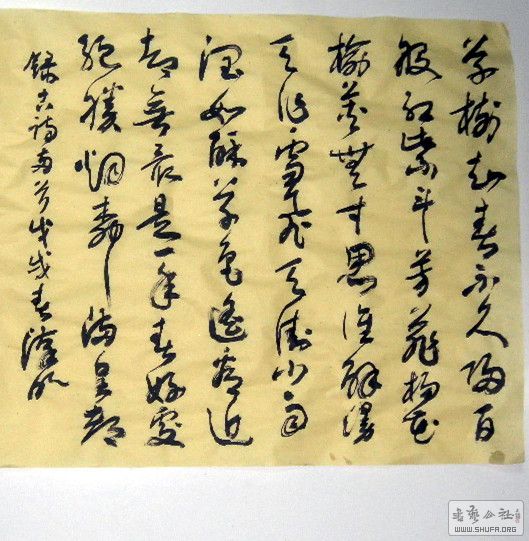 草樹知春不久歸百
般紅紫斗芳菲楊花
榆莢無才思惟解漫
天作雪飛天街小雨
潤如酥草色遙看近
却無最是一年春好處
絕勝烟柳滿皇都
錄古詩兩首戊戌春
书艺公社
WWW.SHUFA.ORG